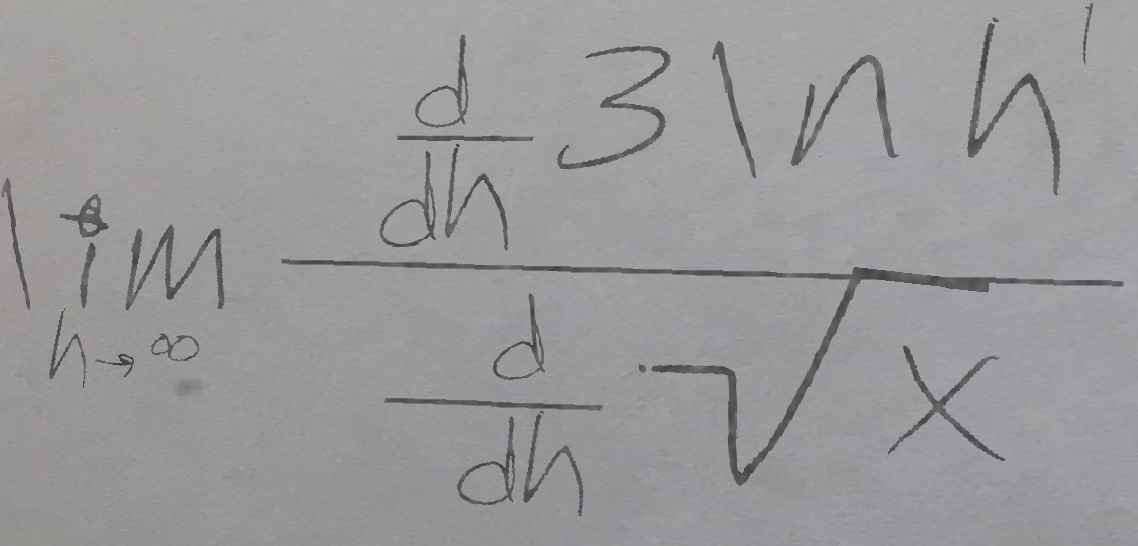 lim h→∞ (d/dh 3 ln h') / (d/dh √x)